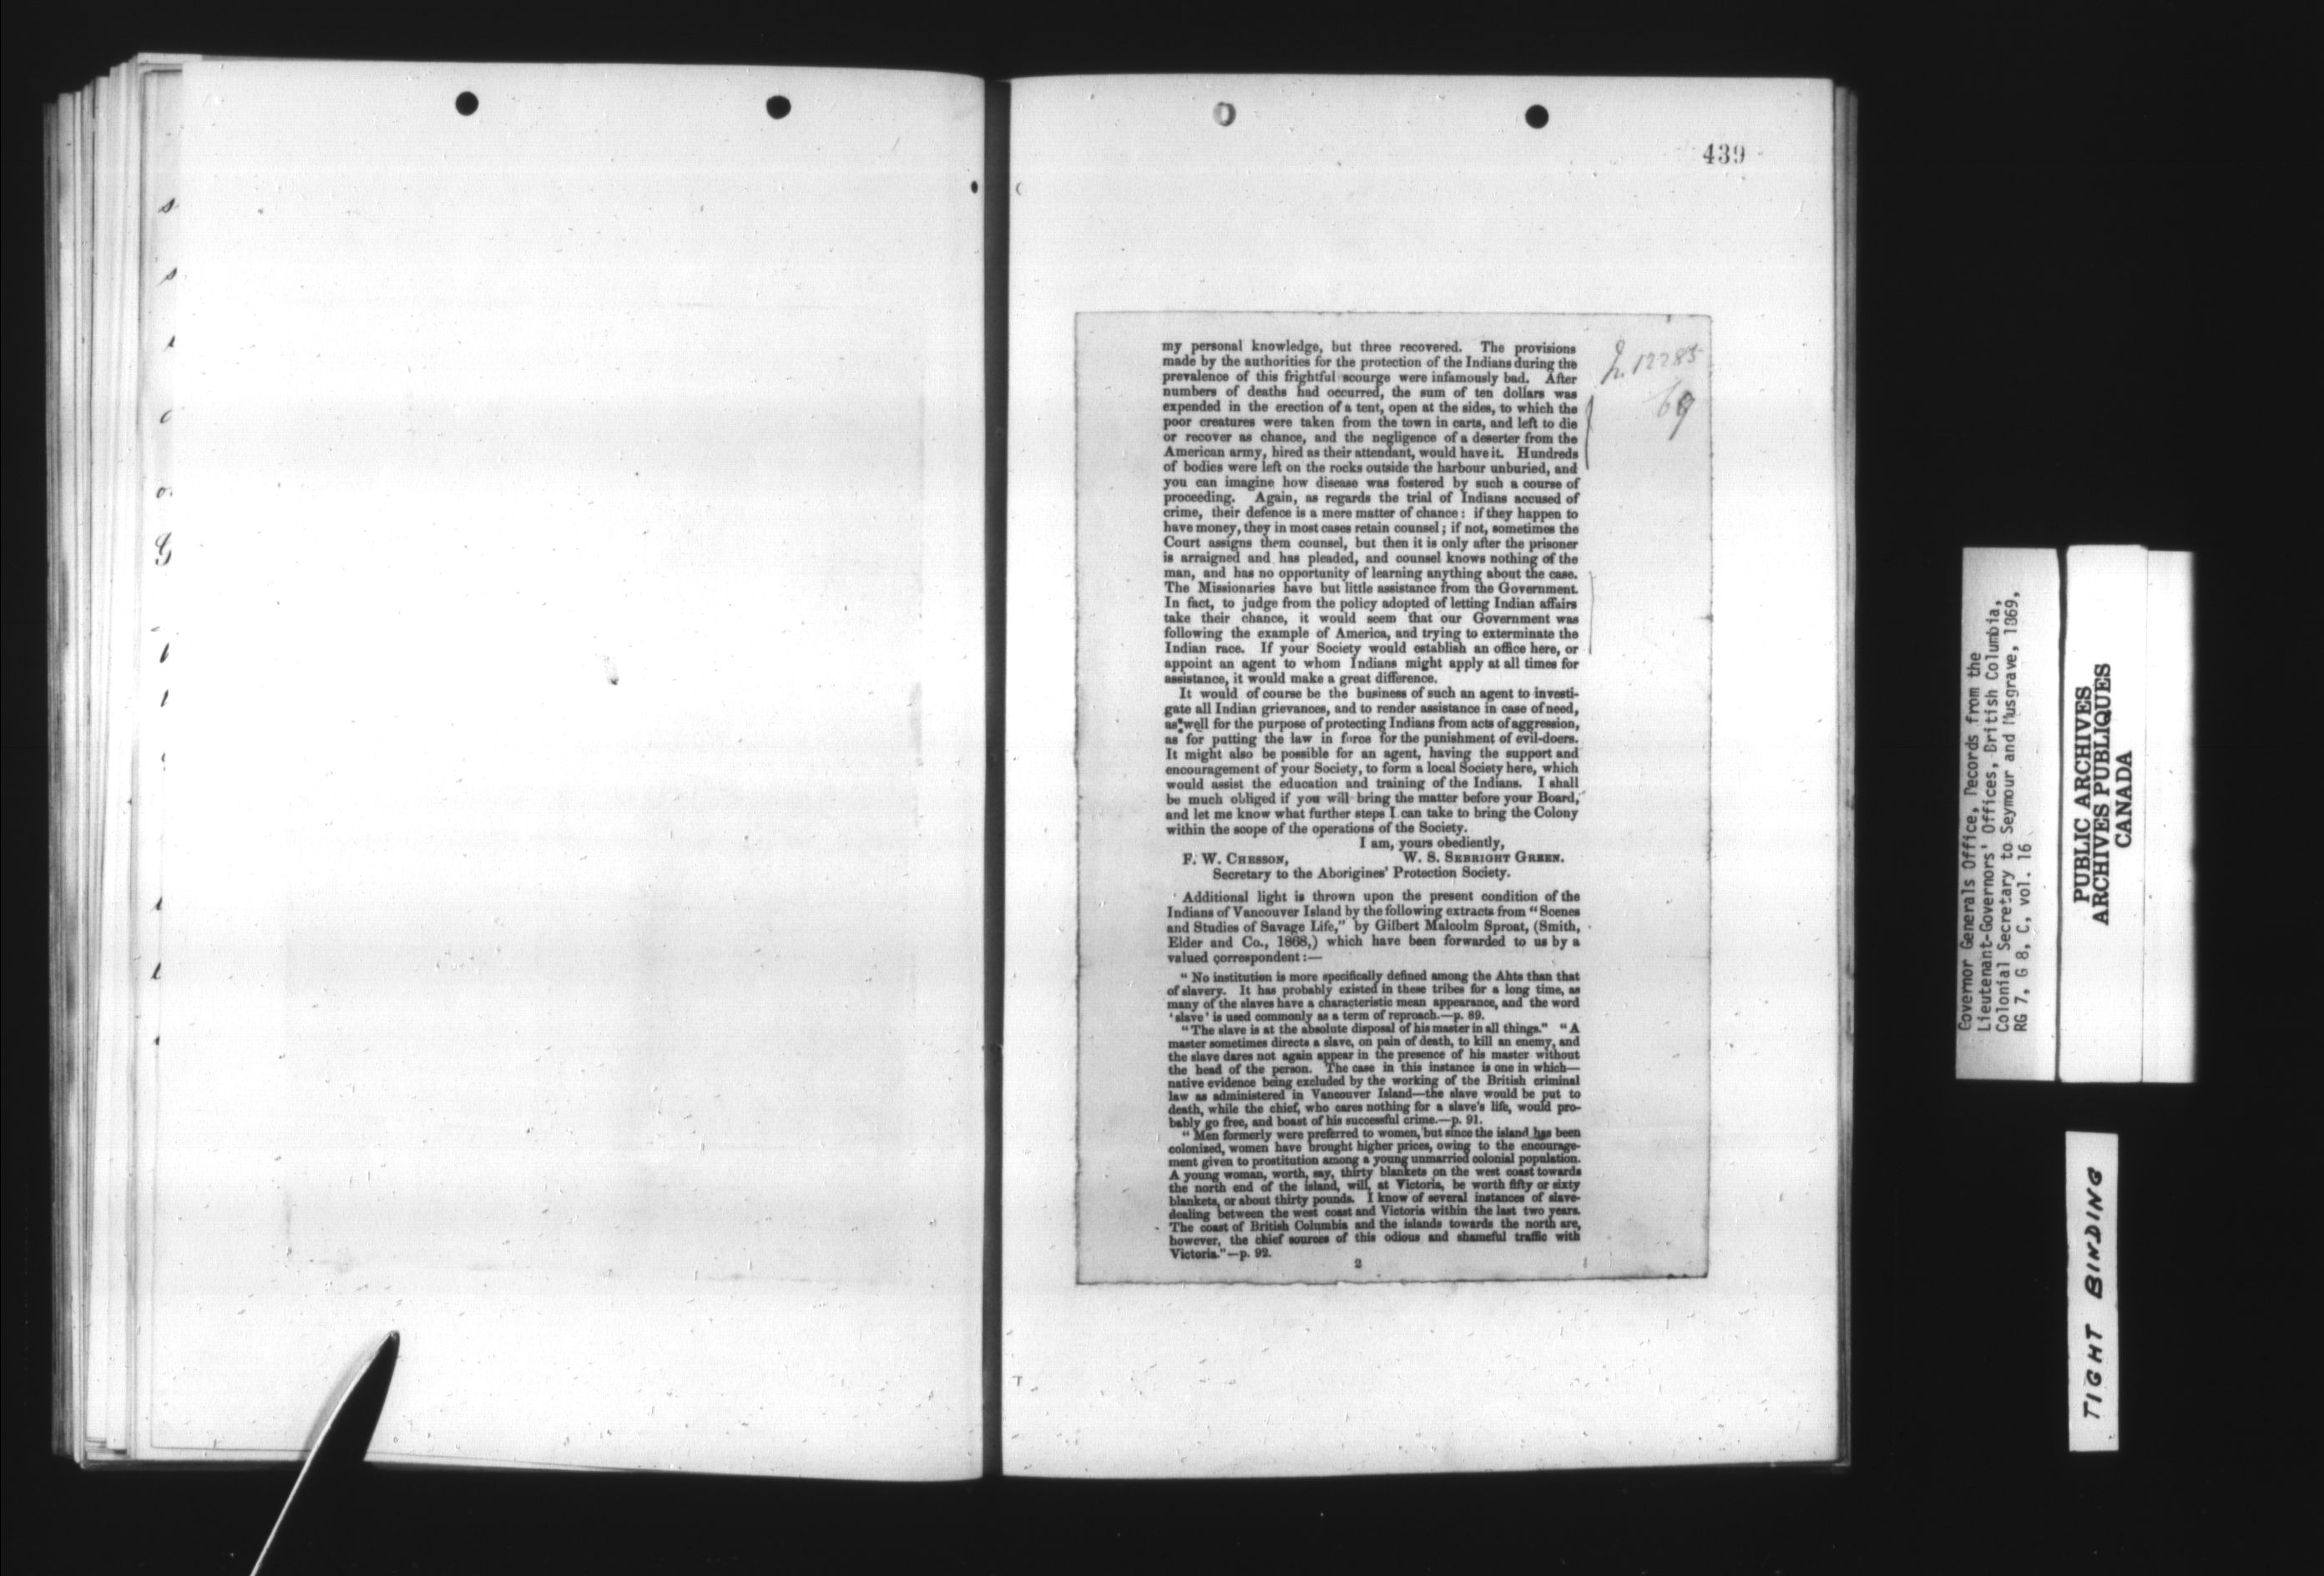 439
12285
69
my personal knowledge, but three recovered. The provisions
made by the authorities for the protection of the Indians during the
prevalence of this frightful scourge were infamously bad. After
numbers of deaths had occurred, the sum of ten dollars was
expended in the erection of a tent, open at the sides, to which the
poor creatures were taken from the town in carts, and left to die
or recover as chance, and the negligence of a deserter from the
American army, hired as their attendant, would have it. Hundreds
of bodies were left on the rocks outside the harbour unburied, and
you can imagine how disease was fostered by such a course of
proceeding. Again, as regards the trial of Indians accused of
crime, their defence is a mere matter of chance: if they happen to
have money, they in most cases retain counsel; if not, sometimes the
Court assigns them counsel, but then it is only after the prisoner
is arraigned and has pleaded, and counsel knows nothing of the
man, and has no opportunity of learning anything about the case.
The Missionaries have but little assistance from the Government.
In fact, to judge from the policy adopted of letting Indian affairs
take their chance, it would seem that our Government was
following the example of America, and trying to exterminate the
Indian race. If your Society would establish an office here, or
appoint an agent to whom Indians might apply at all times for
assistance, it would make a great difference.
It would of course be the business of such an agent to investi-
gate all Indian grievances, and to render assistance in case of need,
as well for the purpose of protecting Indians from acts of aggression,
as for putting the law in force for the punishment of evil-doers.
It might also be possible for an agent, having the support and
encouragement of your Society, to form a local Society here, which
would assist the education and training of the Indians. I shall
be much obliged if you will bring the matter before your Board,
and let me know what further steps I can take to bring the Colony
within the scope of the operations of the Society.
I am, yours obediently,
F. W. CHESSON, W. S. SEBRIGHT GREEN.
Secretary to the Aborigines' Protection Society.
Additional light is thrown upon the present condition of the
Indians of Vancouver Island by the following extracts from "Scenes
and Studies of Savage Life," by Gilbert Malcolm Sproat, (Smith,
Elder and Co., 1868,) which have been forwarded to us by a
valued correspondent:—
"No institution is more specifically defined among the Ahts than that
of slavery. It has probably existed in these tribes for a long time, as
many of the slaves have a characteristic mean appearance, and the word
'slave' is used commonly as a term of reproach.—p. 89.
"The slave is at the absolute disposal of his master in all things." "A
master sometimes directs a slave, on pain of death, to kill an enemy, and
the slave dares not again appear in the presence of his master without
the head of the person. The case in this instance is one in which—
native evidence being excluded by the working of the British criminal
law as administered in Vancouver Island—the slave would be put to
death, while the chief, who cares nothing for a slave's life, would pro-
bably go free, and boast of his successful crime.—p. 91.
"Men formerly were preferred to women, but since the island has been
colonized, women have brought higher prices, owing to the encourage-
ment given to prostitution among a young unmarried colonial population.
A young woman, worth, say, thirty blankets on the west coast towards
the north end of the island, will, at Victoria, be worth fifty or sixty
blankets, or about thirty pounds. I know of several instances of slave-
dealing between the west coast and Victoria within the last two years.
The coast of British Columbia and the islands towards the north are,
however, the chief sources of this odious and shameful traffic with
Victoria."—p. 92.
2
Governor Generals Office, Records from the
Lieutenant-Governors' Offices, British Columbia,
Colonial Secretary to Seymour and Musgrave, 1869,
RG 7, G 8, C, vol. 16
PUBLIC ARCHIVES
ARCHIVES PUBLIQUES
CANADA
TIGHT BINDING